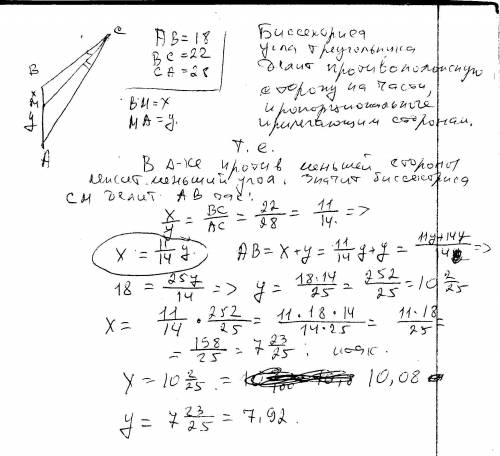 C
B
x
M
y
A
AB = 18
BC = 22
CA = 28
BM = x
MA = y.
Биссектриса
угла треугольника
делит противоположную
сторону на части,
пропорциональные
прилегающим сторонам.
Т. е.
В Δ-ке против меньшей стороны
лежит меньший угол. Значит биссектриса
CM делит AB так:
x/y = BC/AC = 22/28 = 11/14 =>
x = 11/14 y. AB = x + y = 11/14 y + y = (11y + 14y)/14 =>
18 = 25y/14 => y = 18·14/25 = 252/25 = 10 2/25
x = 11/14 · 252/25 = 11·18·14/14·25 = 11·18/25 =
= 198/25 = 7 23/25 ;
x = 10 2/25 = 10,08
y = 7 23/25 = 7,92.